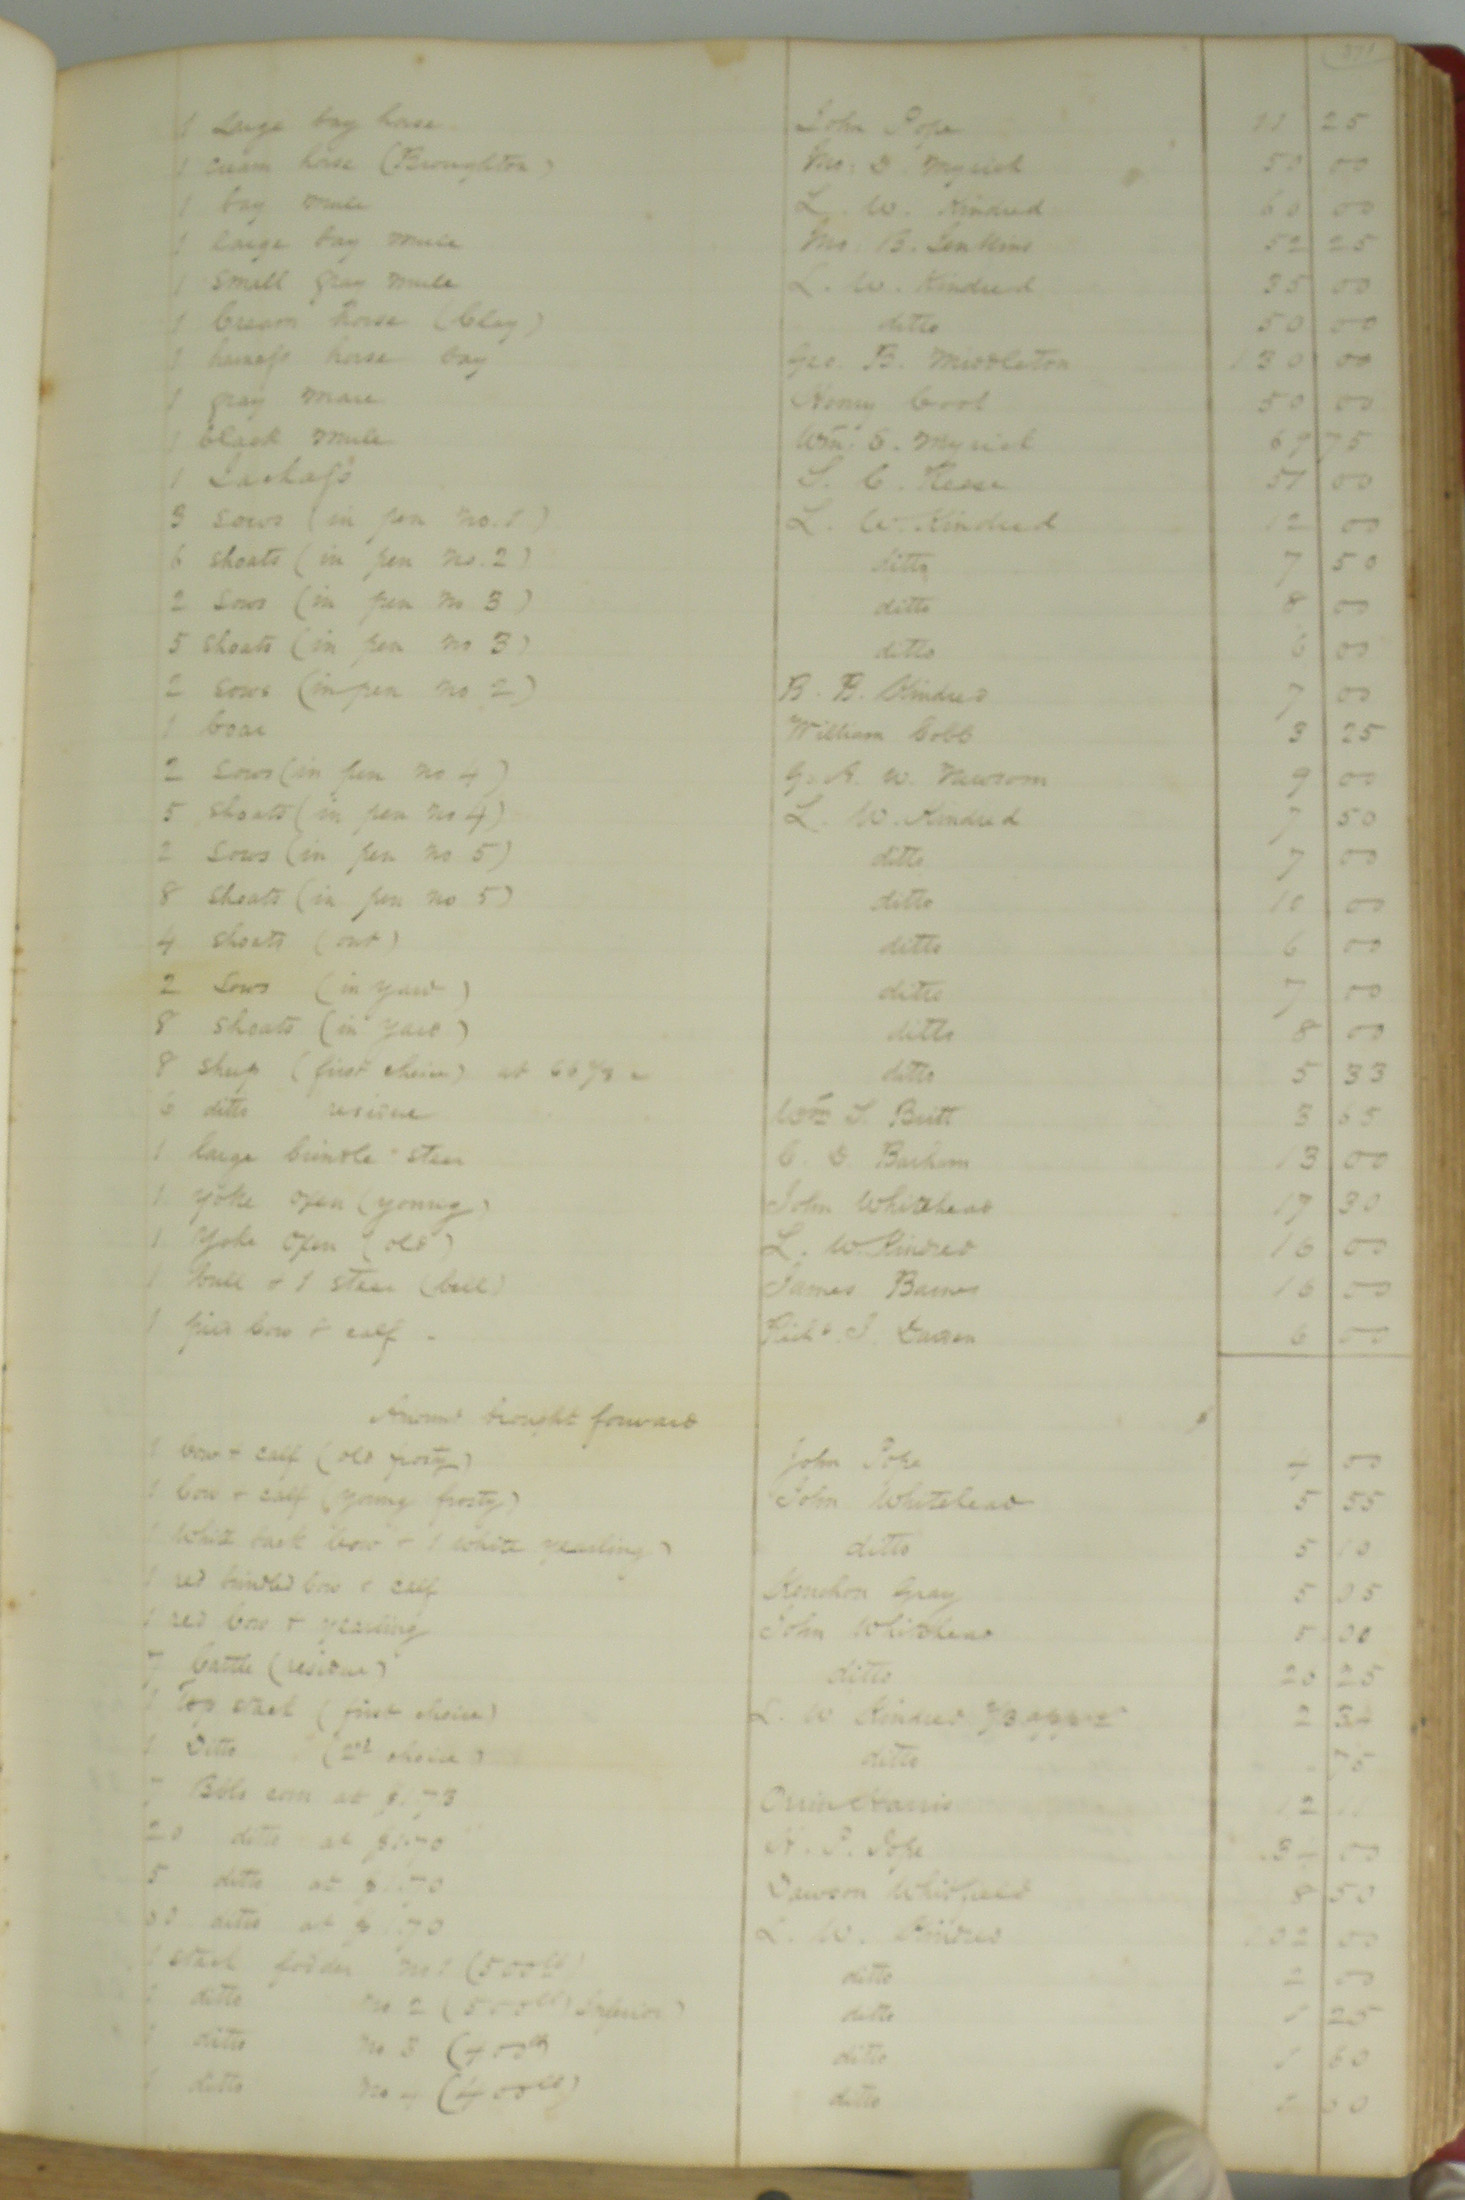 371
1 Large bay horse John Pope 11 25
1 cream horse (Broughton) Jno. D. Myrick 50 00
1 bay mule L. W. Kindred 60 00
1 large bay mule Jno. B. Jenkins 52 25
1 small gray mule L. W. Kindred 35 00
1 Cream horse (Clay) ditto 50 00
1 harness horse bay Geo. B. Middleton 130 00
1 gray mare Henry 50 00
1 black mule Wm. E. Myrick 69 75
1 Jackass S. C. Reese 51 00
3 sows (in pen no. 1) L. W. Kindred 12 00
6 shoats (in pen no. 2) ditto 7 50
2 sows (in pen no 3) ditto 8 00
5 shoats (in pen no 3) ditto 6 00
2 sows (in pen no 2) B. B. Kindred 7 00
1 boar William Cobb 3 25
2 sows (in pen no 4) W. Newsom 9 00
5 shoats (in pen no 4) L. W. Kindred 7 50
2 sows (in pen no 5) ditto 7 00
8 shoats (in pen no 5) ditto 10 00
4 shoats (out) ditto 6 00
2 sows (in yard) ditto 7 00
8 shoats (in yard) ditto 8 00
8 sheep (first choice) at 66 2/3 c ditto 5 33
6 ditto residue Wm S. Britt 3 65
1 large brindle steer C. D. Barham 13 00
1 yoke oxen (young) John Whitehead 17 30
1 Yoke Oxen (old) L. W. Kindred 16 00
1 bull & 1 steer (bell) James Barnes 16 00
1 pied Cow & calf Richd. J. Darden 6 00
Amount brought forward $
1 Cow & calf (old frosty) John Pope 4 00
1 Cow & calf (young frosty) John Whitehead 5 55
1 White back Cow & 1 white yearling) ditto 5 10
1 red brindled Cow & calf Gray 5 05
1 red Cow & yearling John Whitehead 5 00
7 Cattle (residue) ditto 20 25
1 top stack (first choice) L. W Kindred 2
1 Ditto (2nd choice) ditto 75
7 Bbls corn at $1.73 Orrin Harris 12 11
20 ditto at $1.70 Pope 00
5 ditto at $1.70 Dawson Whitfield 8 50
60 ditto at $1.70 L. W. Kindred 102 00
1 stack fodder no 1 (500 lb) ditto 2 00
1 ditto no 2 (500 lb) Inferior) ditto 1 25
1 ditto no 3 (400 lb) ditto 1 60
1 ditto no 4 (400 lb) ditto